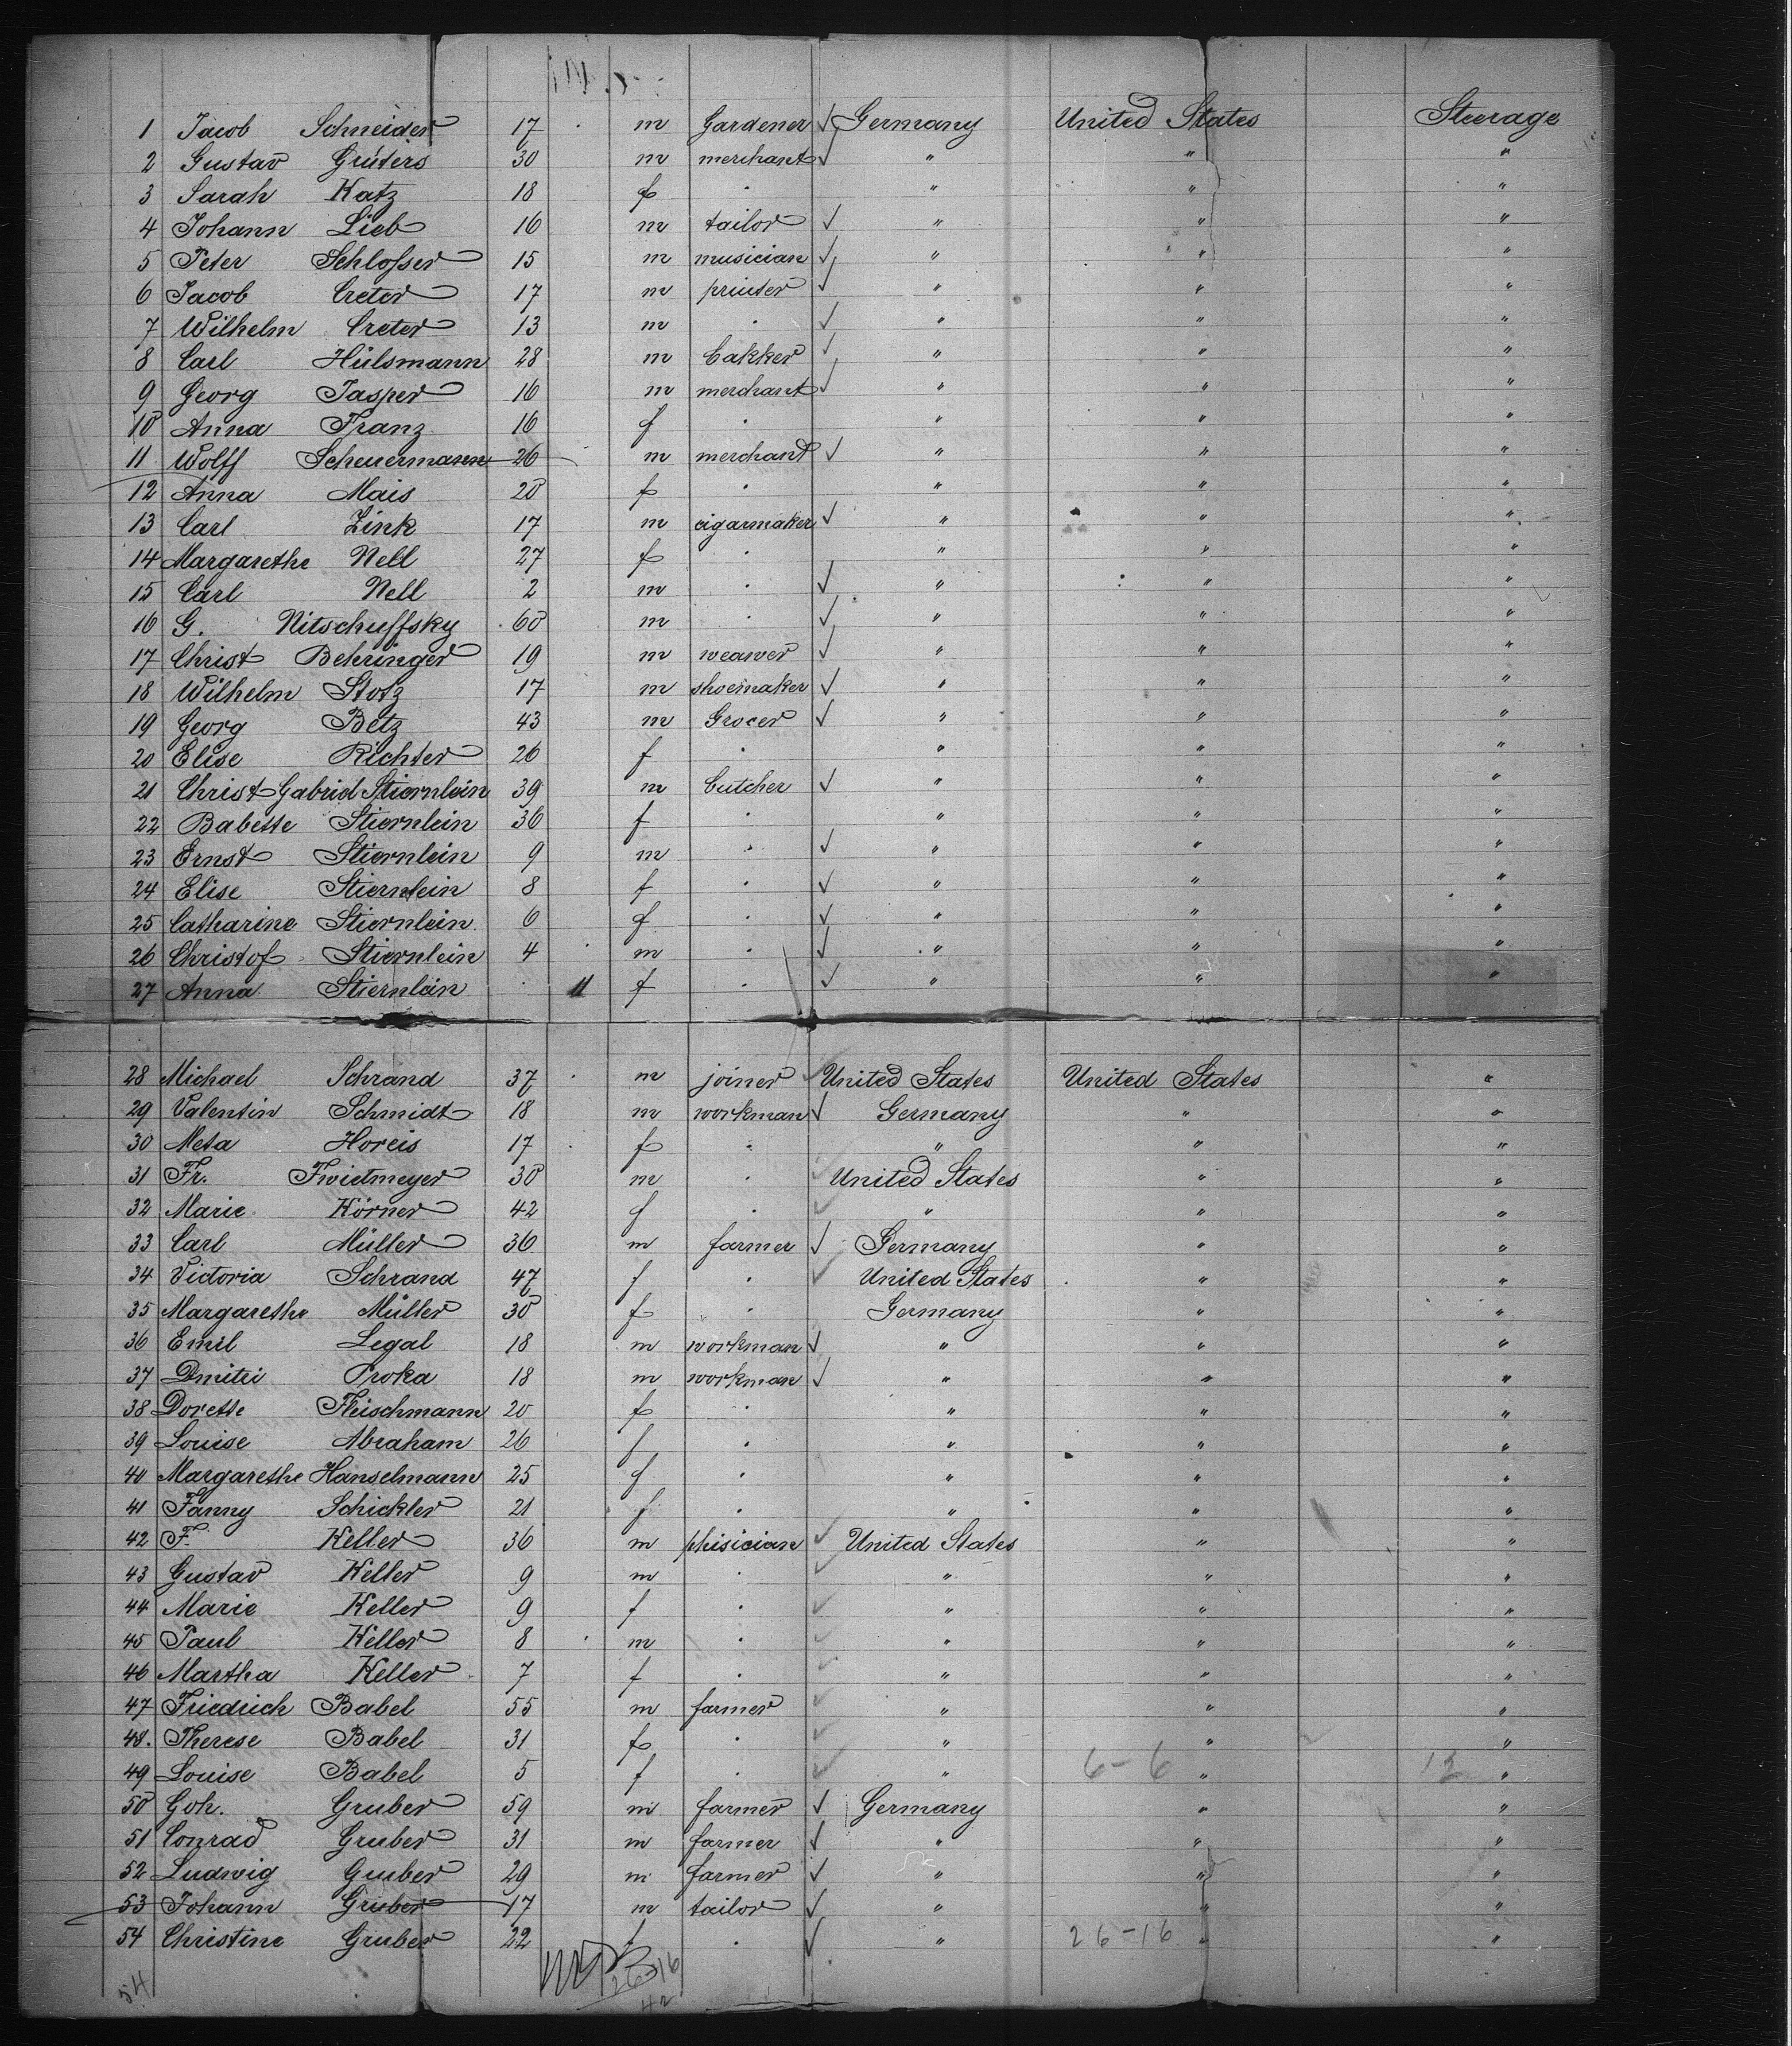 1 Jacob Schneider 17 m Gardener Germany United States Steerage
2 Gustav Grüters 30 m merchant " " "
3 Sarah Katz 18 f . " " "
4 Johann Lieb 16 m tailor " " "
5 Peter Schloſser 15 m musician " " "
6 Jacob Creter 17 m printer " " "
7 Wilhelm Creter 13 m . " " "
8 Carl Hülsmann 28 m bakker " " "
9 Georg Jasper 16 m merchant " " "
10 Anna Franz 16 f . " " "
11 Wolff Scheuermann 26 m merchant " " "
12 Anna Mais 20 f . " " "
13 Carl Zink 17 m cigarmaker " " "
14 Margarethe Nell 27 f . " " "
15 Carl Nell 2 m . " " "
16 G. Nitschuffsky 60 m . " " "
17 Christ Behringer 19 m weawer " " "
18 Wilhelm Stotz 17 m shoemaker " " "
19 Georg Betz 43 m Grocer " " "
20 Elise Richter 26 f . " " "
21 Christ Gabriel Stiernlein 39 m butcher " " "
22 Babette Stiernlein 36 f . " " "
23 Ernst Stiernlein 9 m . " " "
24 Elise Stiernlein 8 f . " " "
25 Catharine Stiernlein 6 f . " " "
26 Christof Stiernlein 4 m . " " "
27 Anna Stiernlein . 11 f . " " "
28 Michael Schrand 37 m joiner United States United States "
29 Valentin Schmidt 18 m workman Germany " "
30 Meta Horeis 17 f . " " "
31 Fr. Fwietmeyer 30 m . United States " "
32 Marie Körner 42 f . " " "
33 Carl Müller 36 m farmer Germany " "
34 Victoria Schrand 47 f . United States " "
35 Margarethe Müller 30 f . Germany " "
36 Emil Legal 18 m workman " " "
37 Dmitri Proka 18 m workman " " "
38 Dorette Fleischmann 20 f . " " "
39 Louise Abraham 26 f . " " "
40 Margarethe Hanselmann 25 f . " " "
41 Fanny Schickler 21 f . " " "
42 F. Keller 36 m phisician United States " "
43 Gustav Keller 9 m . " " "
44 Marie Keller 9 f . " " "
45 Paul Keller 8 m . " " "
46 Martha Keller 7 f . " " "
47 Friedrich Babel 55 m farmer " " "
48. Therese Babel 31 f . " " "
49 Louise Babel 5 f . " 6-6 " 12 "
50 Goh. Gruber 59 m farmer Germany " "
51 Conrad Gruber 31 m farmer " " "
52 Ludwig Gruber 29 m farmer " " "
53 Johann Gruber 17 m tailor " " "
54 Christine Gruber 22 f . " 26-16 " "
54 26-16
42